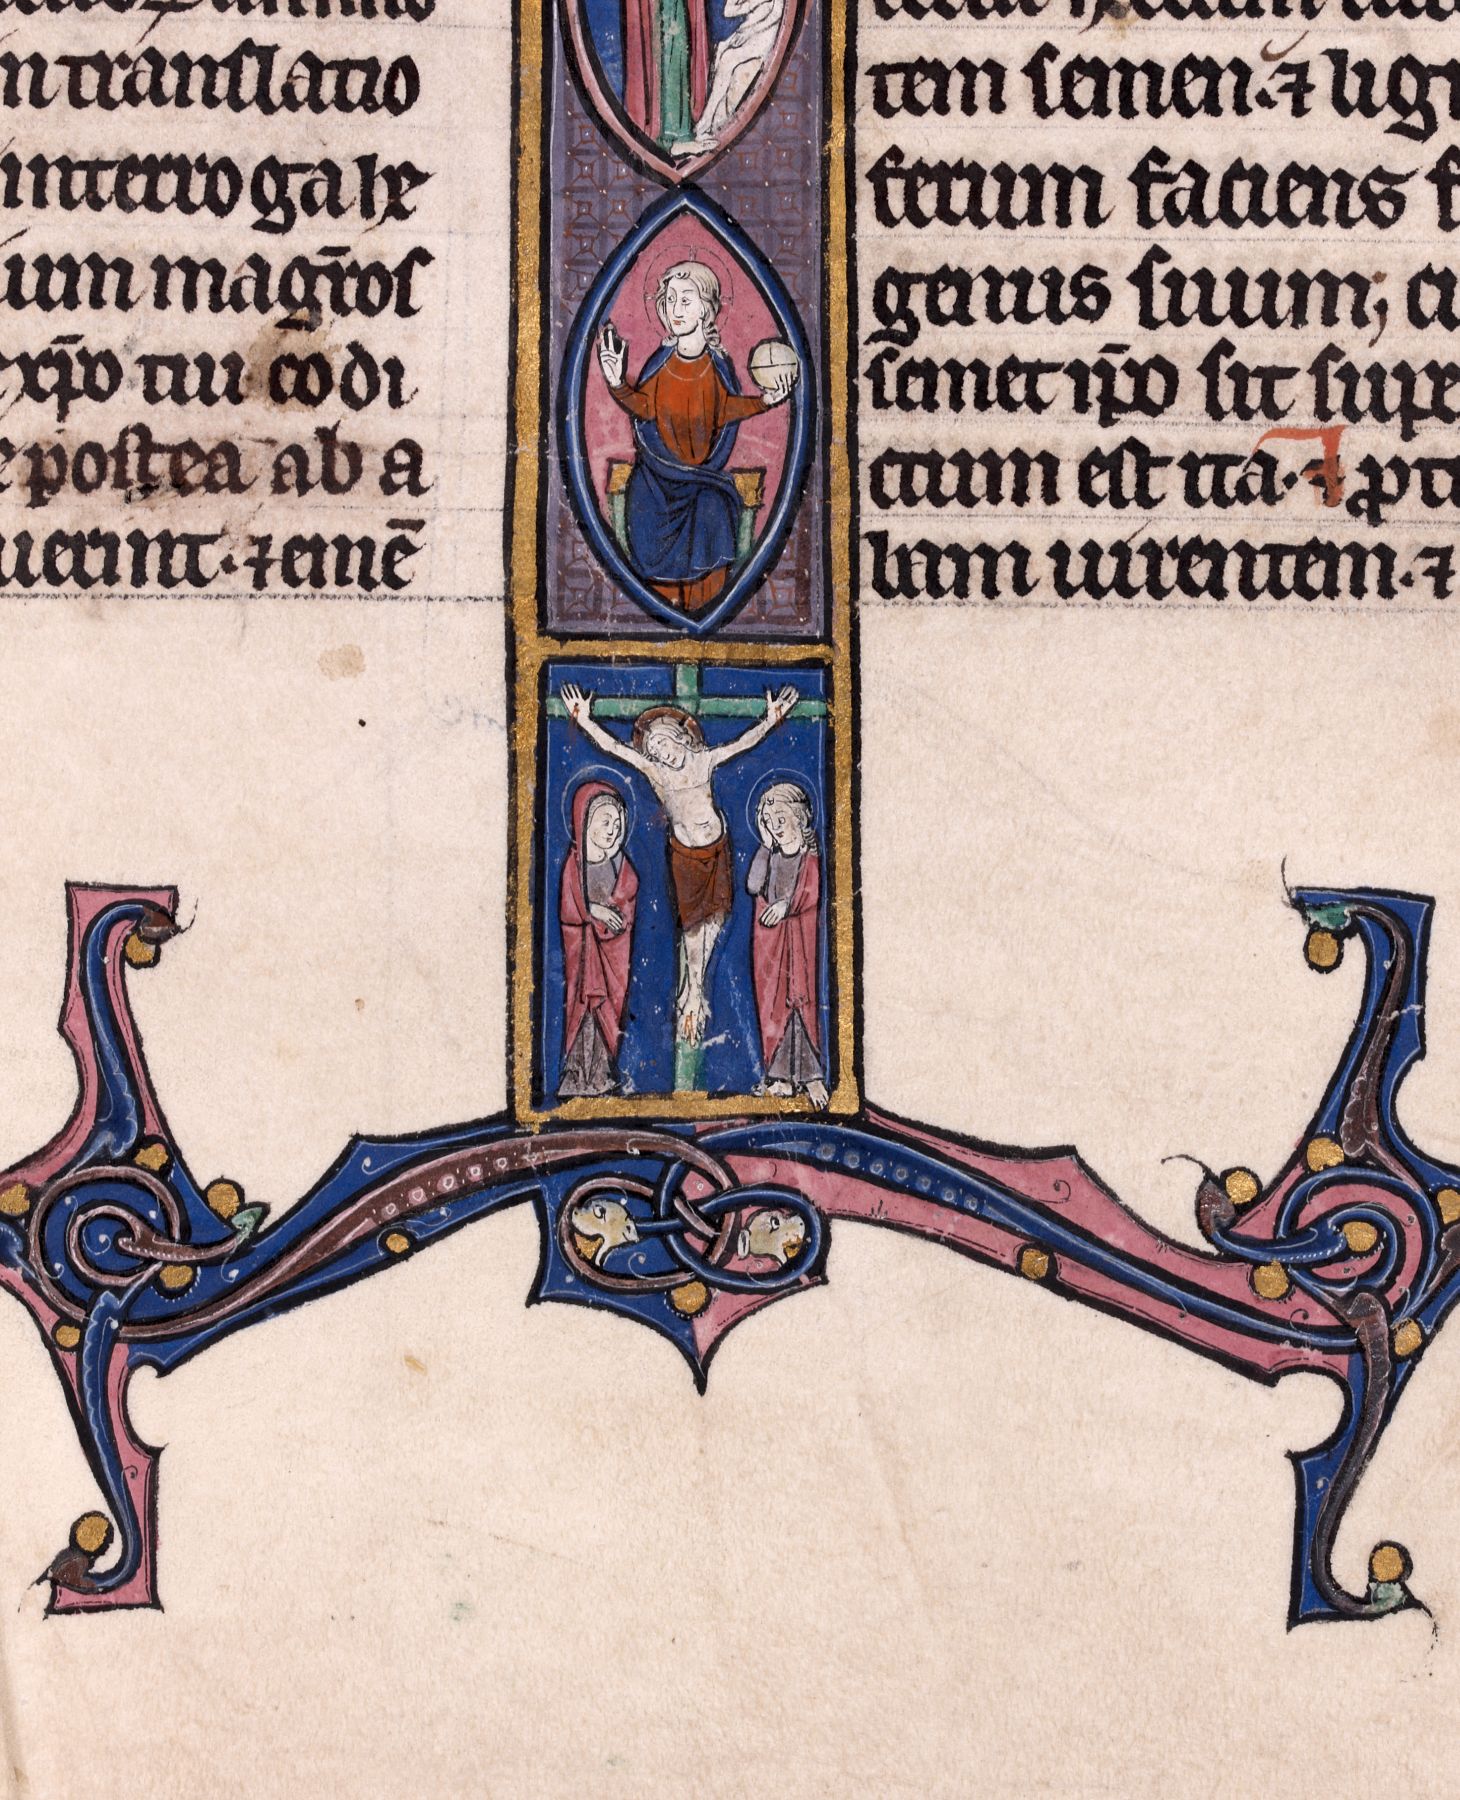 n translatio
interroga lx
um magr̄os
exp̄o tui codi
e postea ab a
uerint. ⁊ emē
tem semen. ⁊ lig
ferum faciens f
genus suum, cu
semet ip̄o sit supe
ctum est ita. ⁊ ꝓtu
bam uirentem. ⁊